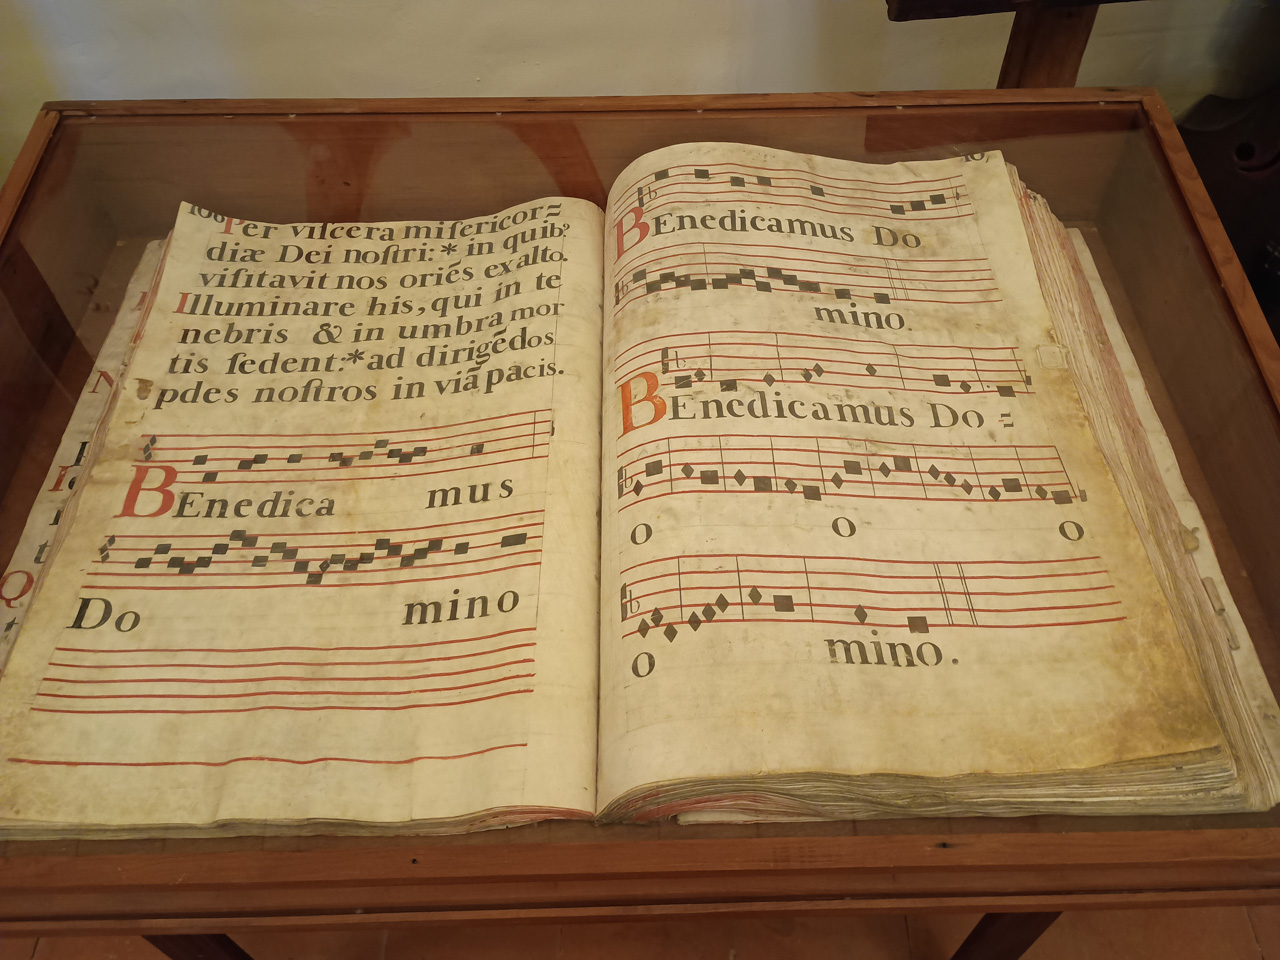 106
Per viſcera miſericor=
diæ Dei noſtri: * in quib9
viſitavit nos oriẽs exalto.
Illuminare his, qui in te
nebris & in umbra mor
tis ſedent: * ad dirigẽdos
pdes noſtros in viã pacis.
BEnedica mus
Do mino
BEnedicamus Do
mino.
BEnedicamus Do =
o o o
o mino.